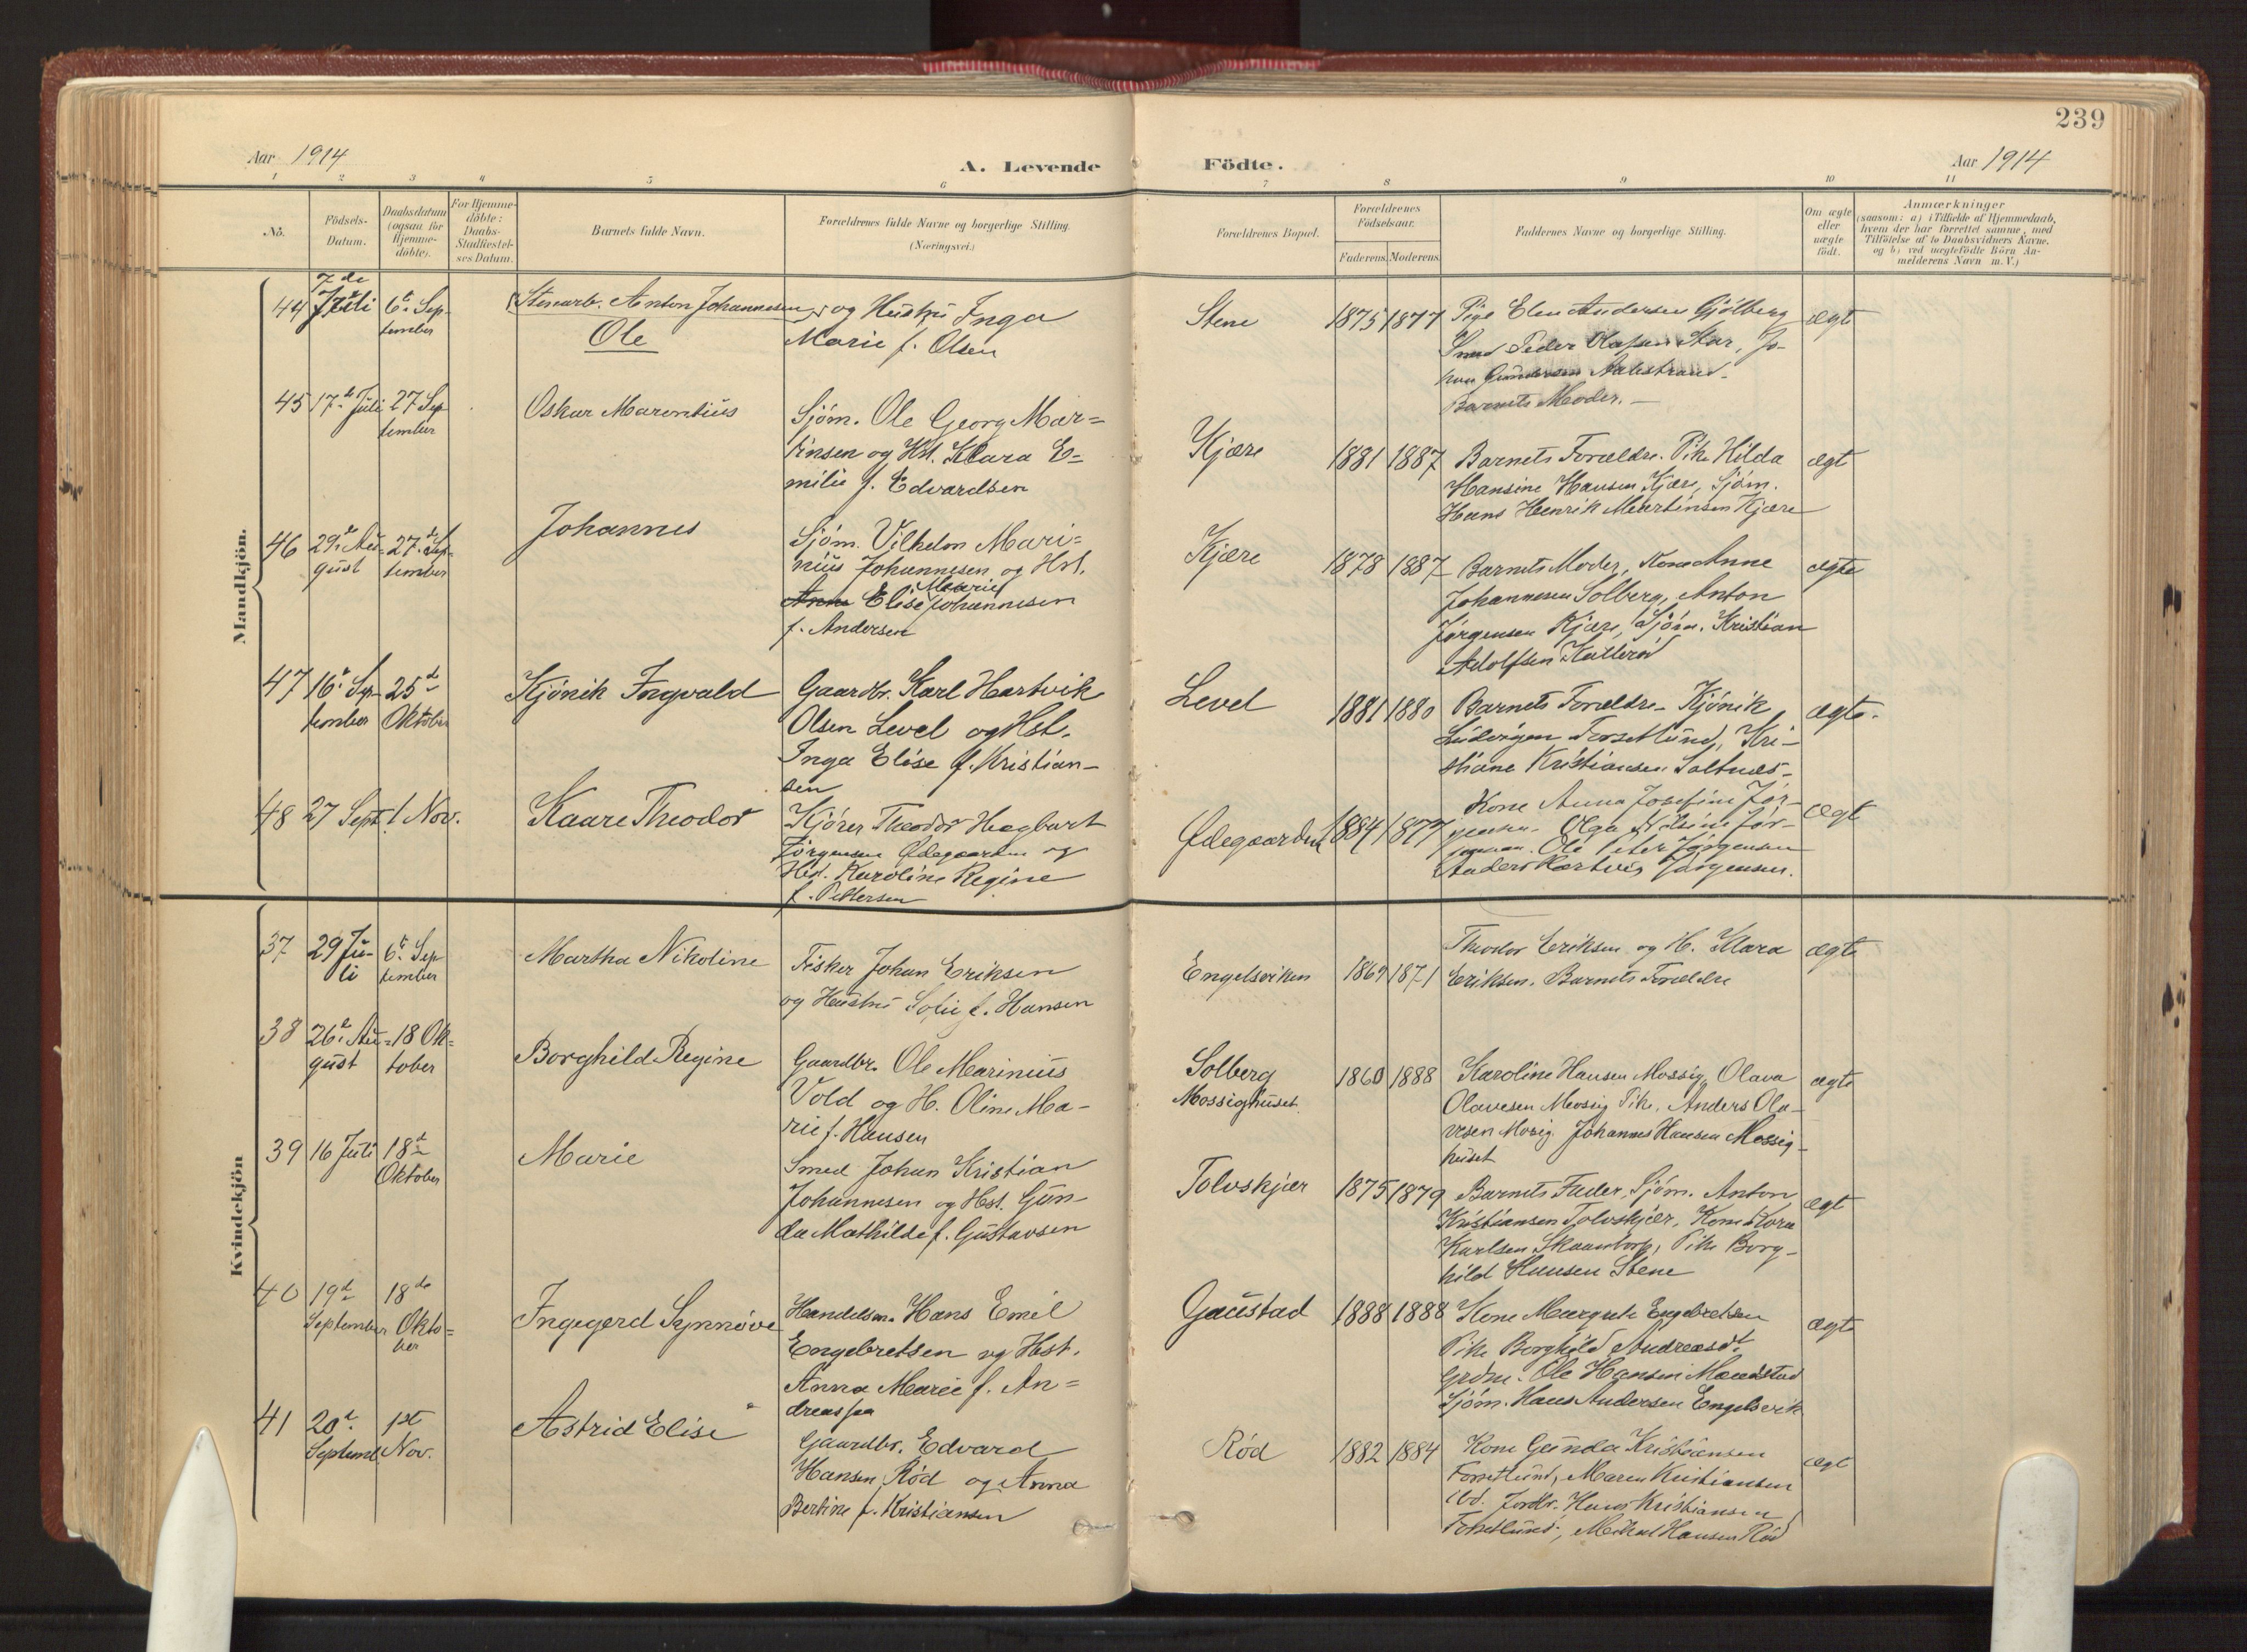 239
Aar 1914
A. Levende Födte.
Aar 1914
1 2 3 4 5 6 7 8 9 10 11
Nö.
Födsels-
Datum.
Daabsdatum
(ogsaa for
Hjemme-
döbte).
For Hjemme-
döbte:
Daabs-
Stadfæstel-
ses Datum.
Barnets fulde Navn.
Forældrenes fulde Navne og borgerlige Stilling.
(Næringsvei.)
Forældrenes Bopæl.
Forældrenes
Födselsaar.
Faderens. Moderens.
Faddernes Navne og borgerlige Stilling.
Om ægte
eller
uægte
födt.
Anmærkninger
(saasom: a) i Tilfælde af Hjemmedaab,
hvem der har forrettet samme, med
Tilföielse af to Daabsvidners Navne.
og b) ved uægtefödte Börn An-
melderens Navn m. V.)
Mandkjön.
44
7de
Juli
6te Sep-
tember
Stenarb. Anton Johannesen og Hustru Inga
Ole
Marie f. Olsen
Stene
1875 1877
Pige Elen Andersen Gjölberg
Smed Peder Olafsen Skar, Jo-
han Gundersen
Barnets Moder. —
ægte
45
17de Juli
27 Sep-
tember
Oskar Marentius
Sjöm. Ole Georg Mar=
tinsen og Hst. Klara E=
milie f. Edvardsen
Kjære
1881 1887
Barnets Forældre. Pike Hilda
Hansine Hansen Kjære, Sjöm.
Hans Henrik Martinsen Kjære
ægte
46
29de Au=
gust
27de Sep-
tember
Johannes
Sjöm. Vilhelm Mari=
nius Johannesen og Hst.
Anna Elise Marie Johannesen
f. Andersen
Kjære
1878 1887
Barnets Moder, Kone Anne
Johannesen Solberg, Anton
Jörgensen Kjære, Sjöm. Kristian
Adolfsen Kalleröd
ægte
47
16de Sep-
tember
25de
Oktober
Kjönik Ingvald
Gaardbr. Karl Hartvik
Olsen Level og Hst.
Inga Elise f. Kristian-
sen
Level
1881 1880
Barnets Forældre - Kjönik
Ludvigsen Torsetlund, Kri-
stiane Kristiansen Saltnes-
ægte.
48
27 Sept.
1 Nov.
Kaare Theodor
Kjörer Theodor Hagbart
Jörgensen Ødegaarden og
Hst. Karoline Regine
f. Pettersen
Ødegaarden
1884 1877
Kone Anna Josefine Jör-
gensen. Olga Nilsine Jör-
gensen. Ole Peter Jörgensen
Anders Hartvig Jörgensen.
ægte
Kvindekjön
37
29 Ju-
li
6te Sep-
tember
Martha Nikoline
Fisker Johan Eriksen
og Hustru Sofie f. Hansen
Engelsviken
1869 1871
Theodor Eriksen og H. Klara
Eriksen. Barnets Forældre
ægte
38
26de Au=
gust
18 Ok=
tober
Borghild Regine
Gaardbr. Ole Marinius
Vold og H. Oline Ma-
rie f. Hansen
Solberg
Mossighuset.
1860 1888
Karoline Hansen Mossig, Olava
Olavesen Mossig Pike, Anders Ola-
vesen Mosig. Johannes Hansen Mossig-
huset
ægte
39
16 Juli
18de
Oktober
Marie
Smed Johan Kristian
Johannesen og Hst. Gun-
da Mathilde f. Gustavsen
Tolvskjær
1875 1879
Barnets Fader, Sjöm. Anton
Kristiansen Tolvskjær, Kone Kora
Karlsen Skaantorp, Pike Borg-
hild Hansen Stene
ægte
40
19de
September
18de
Okto=
ber
Ingegerd Synnöve
Handelsm. Hans Emil
Engebretsen og Hst.
Anna Marie f. An=
dreassen
Gaustad
1888 1888
Kone Margrete Engebretsen
Pike Borghild Andreasdt
Gröne. Ole Hansen
Sjöm. Hans Andersen Engelsvik
ægte
41
20de
Septemb.
1st
Nov.
Astrid Elise
Gaardbr. Edvard
Hansen Rød og Anna
Bertine f. Kristiansen
Rød
1882 1884
Kone Gunda Kristiansen
Torsetlund, Maren Kristiansen
ibd. Jordbr. Hans Kristiansen
Torsetlund, Mikal Hansen Rød
ægte